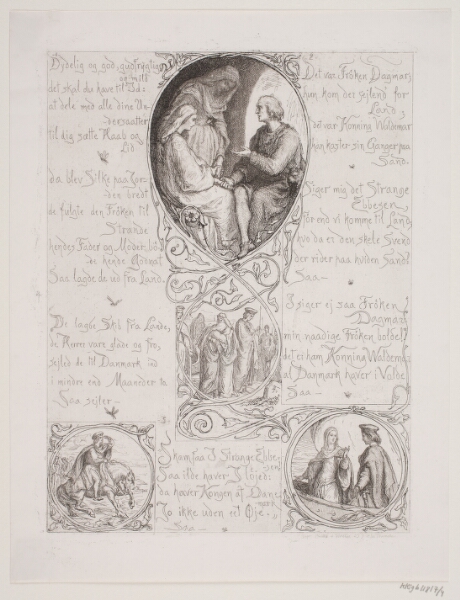 Dydelig og god, gudfrygtig
og mild
det skal du have til Id:
at dele med alle dine Un-
dersaatter
til dig sætte Haab og
Lid
da blev Silke paa Jor-
den bredt
de fulgte den Frøken til
Strande
hendes Fader og Moder, bød
de hende Godnat
Saa lagde de ud fra Land.
De lagde Skib fra Lande,
de Hurre vare glade og fro,
sejled de til Danmark ind
i mindre end Maaneder to
Saa sejler –
Det var Frøken Dagmar,
hun kom der sejlend for
Land,
det var Konning Waldemar
han kaster sin Ganger paa
Sand.
Siger mig det Strange
Ebbesen,
for end vi komme til Land,
hvo da er den skele Svend
der rider paa hviden Sand?
Saa –
I siger ej saa Frøken
Dagmar,
min naadige Frøken bolde!
det er ham Konning Waldemar
al Danmark haver i Volde
Saa –
Skam faa I Strange Ebbe-
sen
Saa ilde haver I løjed:
da haver Kongen af Dane-
mark
Jo ikke uden et Øje –
Saa –